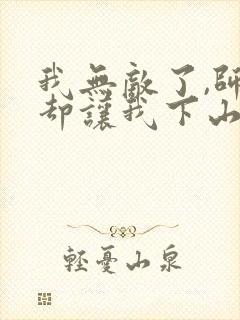 我無敵了,師
却讓我下山
輕憂山泉